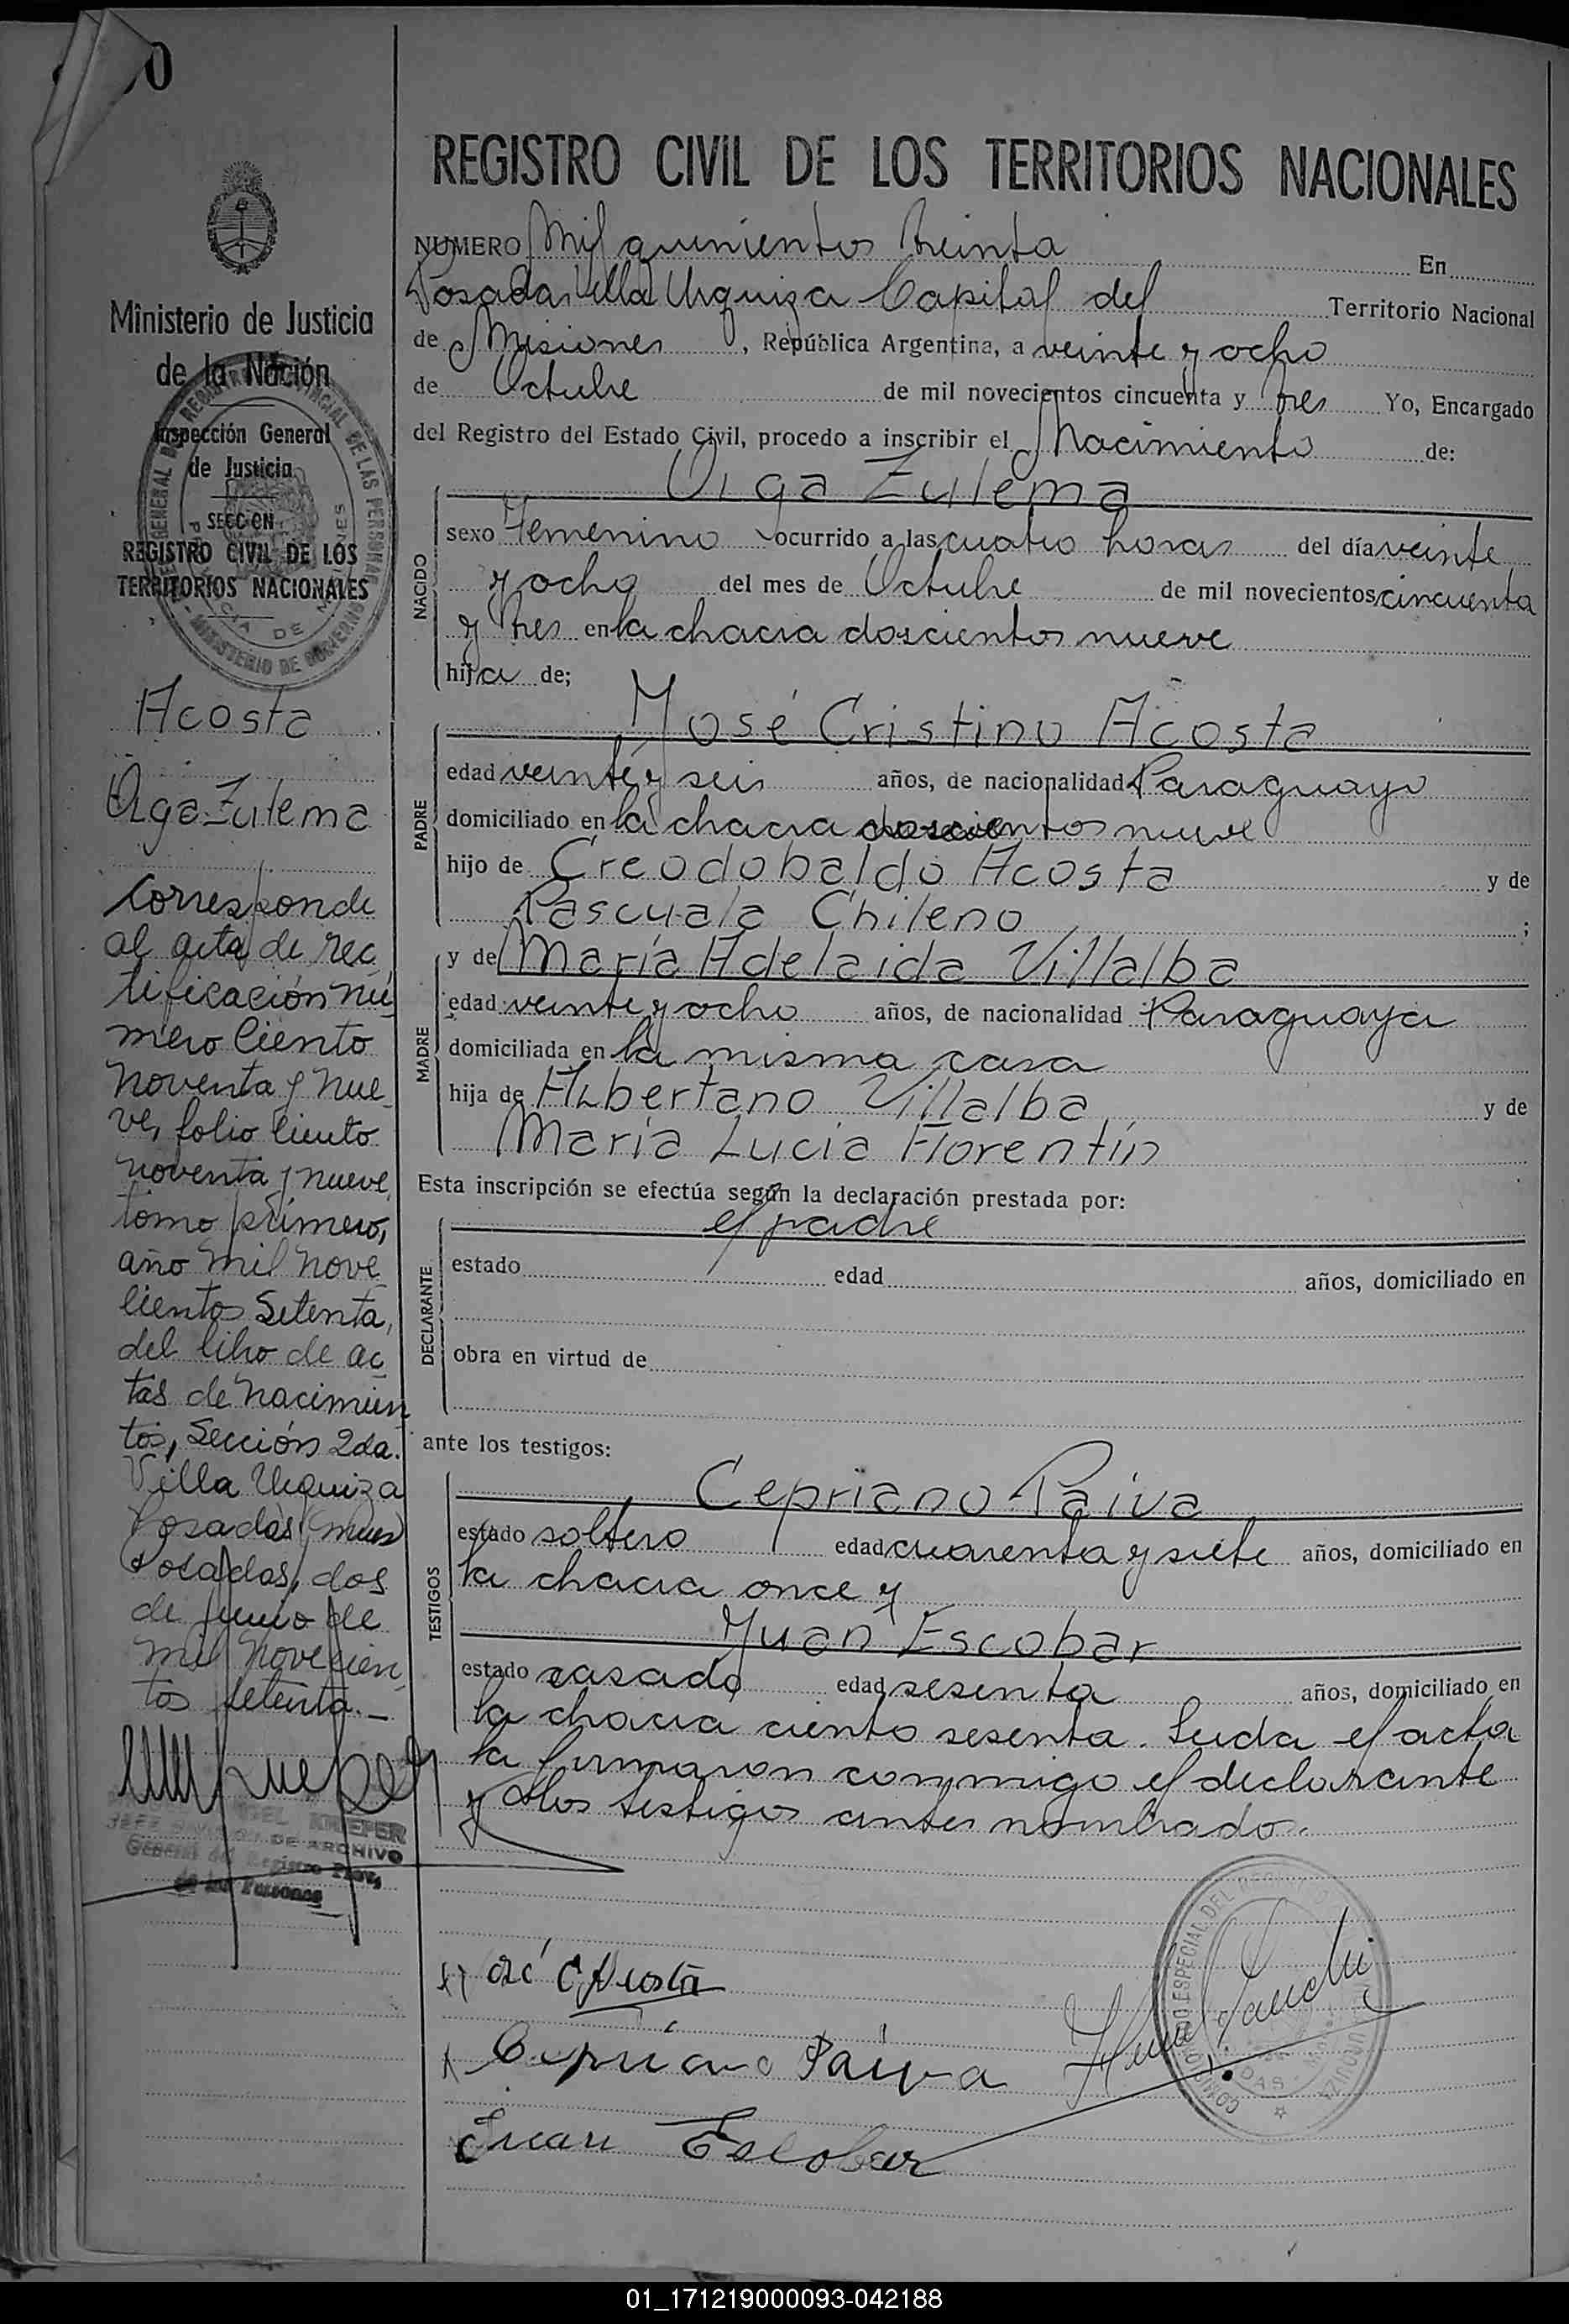 REGISTRO CIVIL DE LOS TERRITORIOS NACIONALES
NUMERO Mil quinientos treinta En
Posadas Villa Urquiza Capital del Territorio Nacional
de Misiones, República Argentina, a veinte y ocho
de Octubre de mil novecientos cincuenta y tres Yo, Encargado
del Registro del Estado Civil, procedo a inscribir el Nacimiento de:
Olga Zulema
NACIDO
sexo Femenino ocurrido a las cuatro horas del día veinte
y ocho del mes de Octubre de mil novecientos cincuenta
y tres en la chacra doscientos nueve
hija de;
PADRE
José Cristino Acosta
edad veinte y seis años, de nacionalidad Paraguayo
domiciliado en la chacra doscientos nueve
hijo de Creodobaldo Acosta y de
Pascuala Chileno ;
MADRE
y de María Adelaida Villalba
edad veinte y ocho años, de nacionalidad Paraguaya
domiciliada en la misma casa
hija de Albertano Villalba y de
María Lucia Florentín
Esta inscripción se efectúa según la declaración prestada por:
DECLARANTE
el padre
estado edad años, domiciliado en
obra en virtud de
ante los testigos:
TESTIGOS
Cepriano Paiva
estado soltero edad cuarenta y siete años, domiciliado en
la chacra once y
Juan Escobar
estado casado edad sesenta años, domiciliado en
la chacra ciento sesenta. Leida el acta
la firmaron conmigo el declarante
y los testigos antes nombrado.
José C. Acosta
Cipriano Paiva
Juan Escobar
Ministerio de Justicia
de la Nación
Inspección General
de Justicia
SECCION
REGISTRO CIVIL DE LOS
TERRITORIOS NACIONALES
Acosta
Olga Zulema
Corresponde
al acta de rec
tificación nú
mero Ciento
noventa y nue
ve, folio Ciento
noventa y nueve
tomo primero,
año mil nove
cientos Setenta,
del libro de ac
tas de nacimien
tos, Sección 2da.
Villa Urquiza
Posadas
Posadas, dos
de junio de
mil novecien
tos setenta.-
KNIEPER
JEFE DIVISION DE ARCHIVO
General del Registro Prov.
de las Personas
01_171219000093-042188